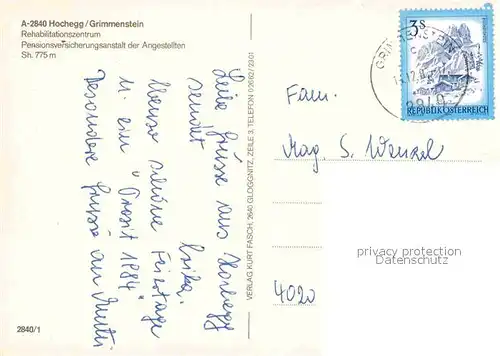 A-2840 Hochegg/Grimmenstein
Rehabilitationszentrum
Pensionsversicherungsanstalt der Angestellten
Sh. 775 m
Liebe Grüsse aus Hochegg
sendet
Erika.
Ebenso schöne Feiertage
u. ein "Prosit 1984"
Besondere Grüsse an Mutti
VERLAG KURT FASCH, 2640 GLOGGNITZ, ZEILE 3, TELEFON
2840/1
3 S
REPUBLIK ÖSTERREICH
GRIMMENSTEIN
2840
Fam.
Mag. S. Wenzel
4020
privacy protection
Datenschutz